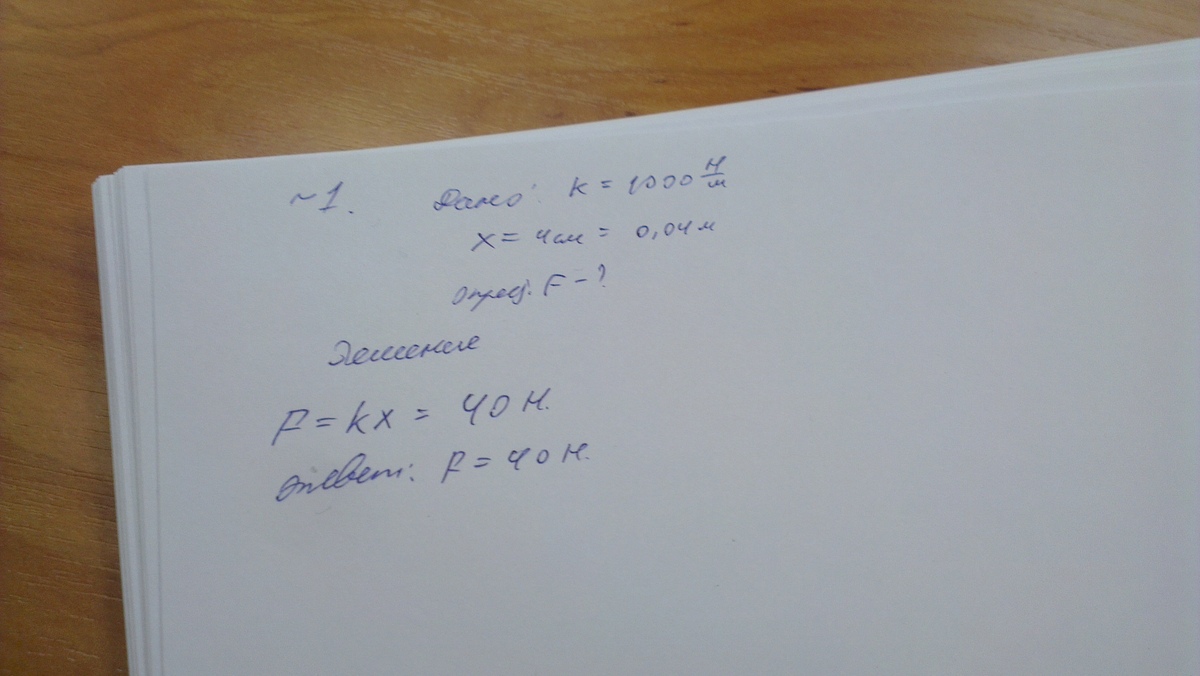 ~1. Дано: k = 1000 Н/м
x = 4 см = 0,04 м
опред. F - ?
Решение
F = kx = 40 Н.
Ответ: F = 40 Н.